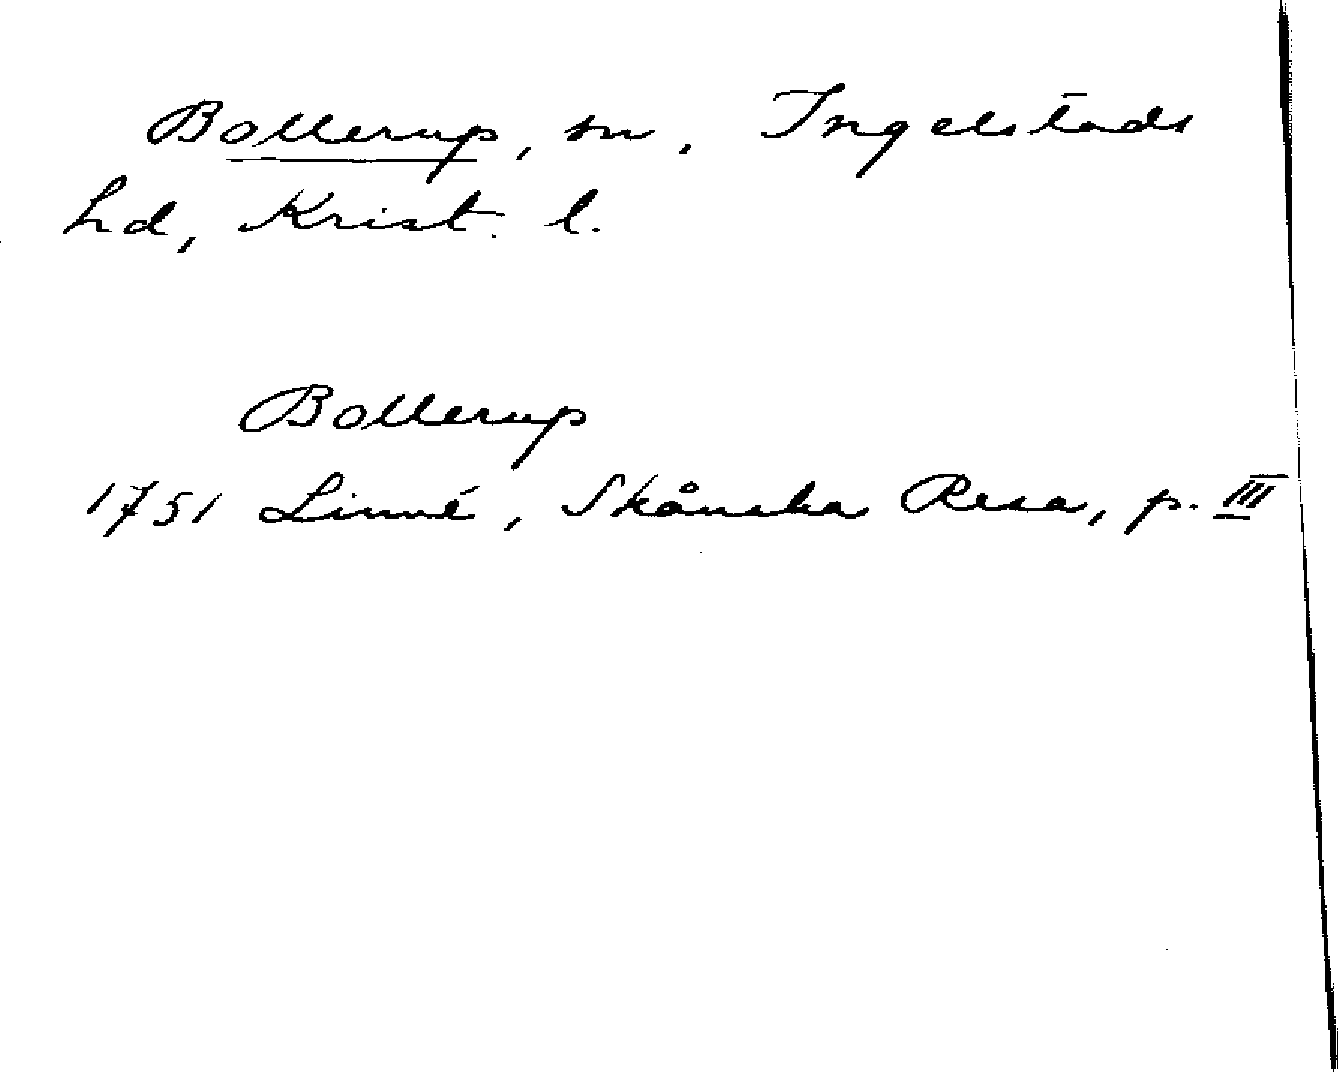 Bollerup, sn, Ingelstads
hd, Krist. l.
Bollerup
1751 Linné, Skånska Resa, p. III